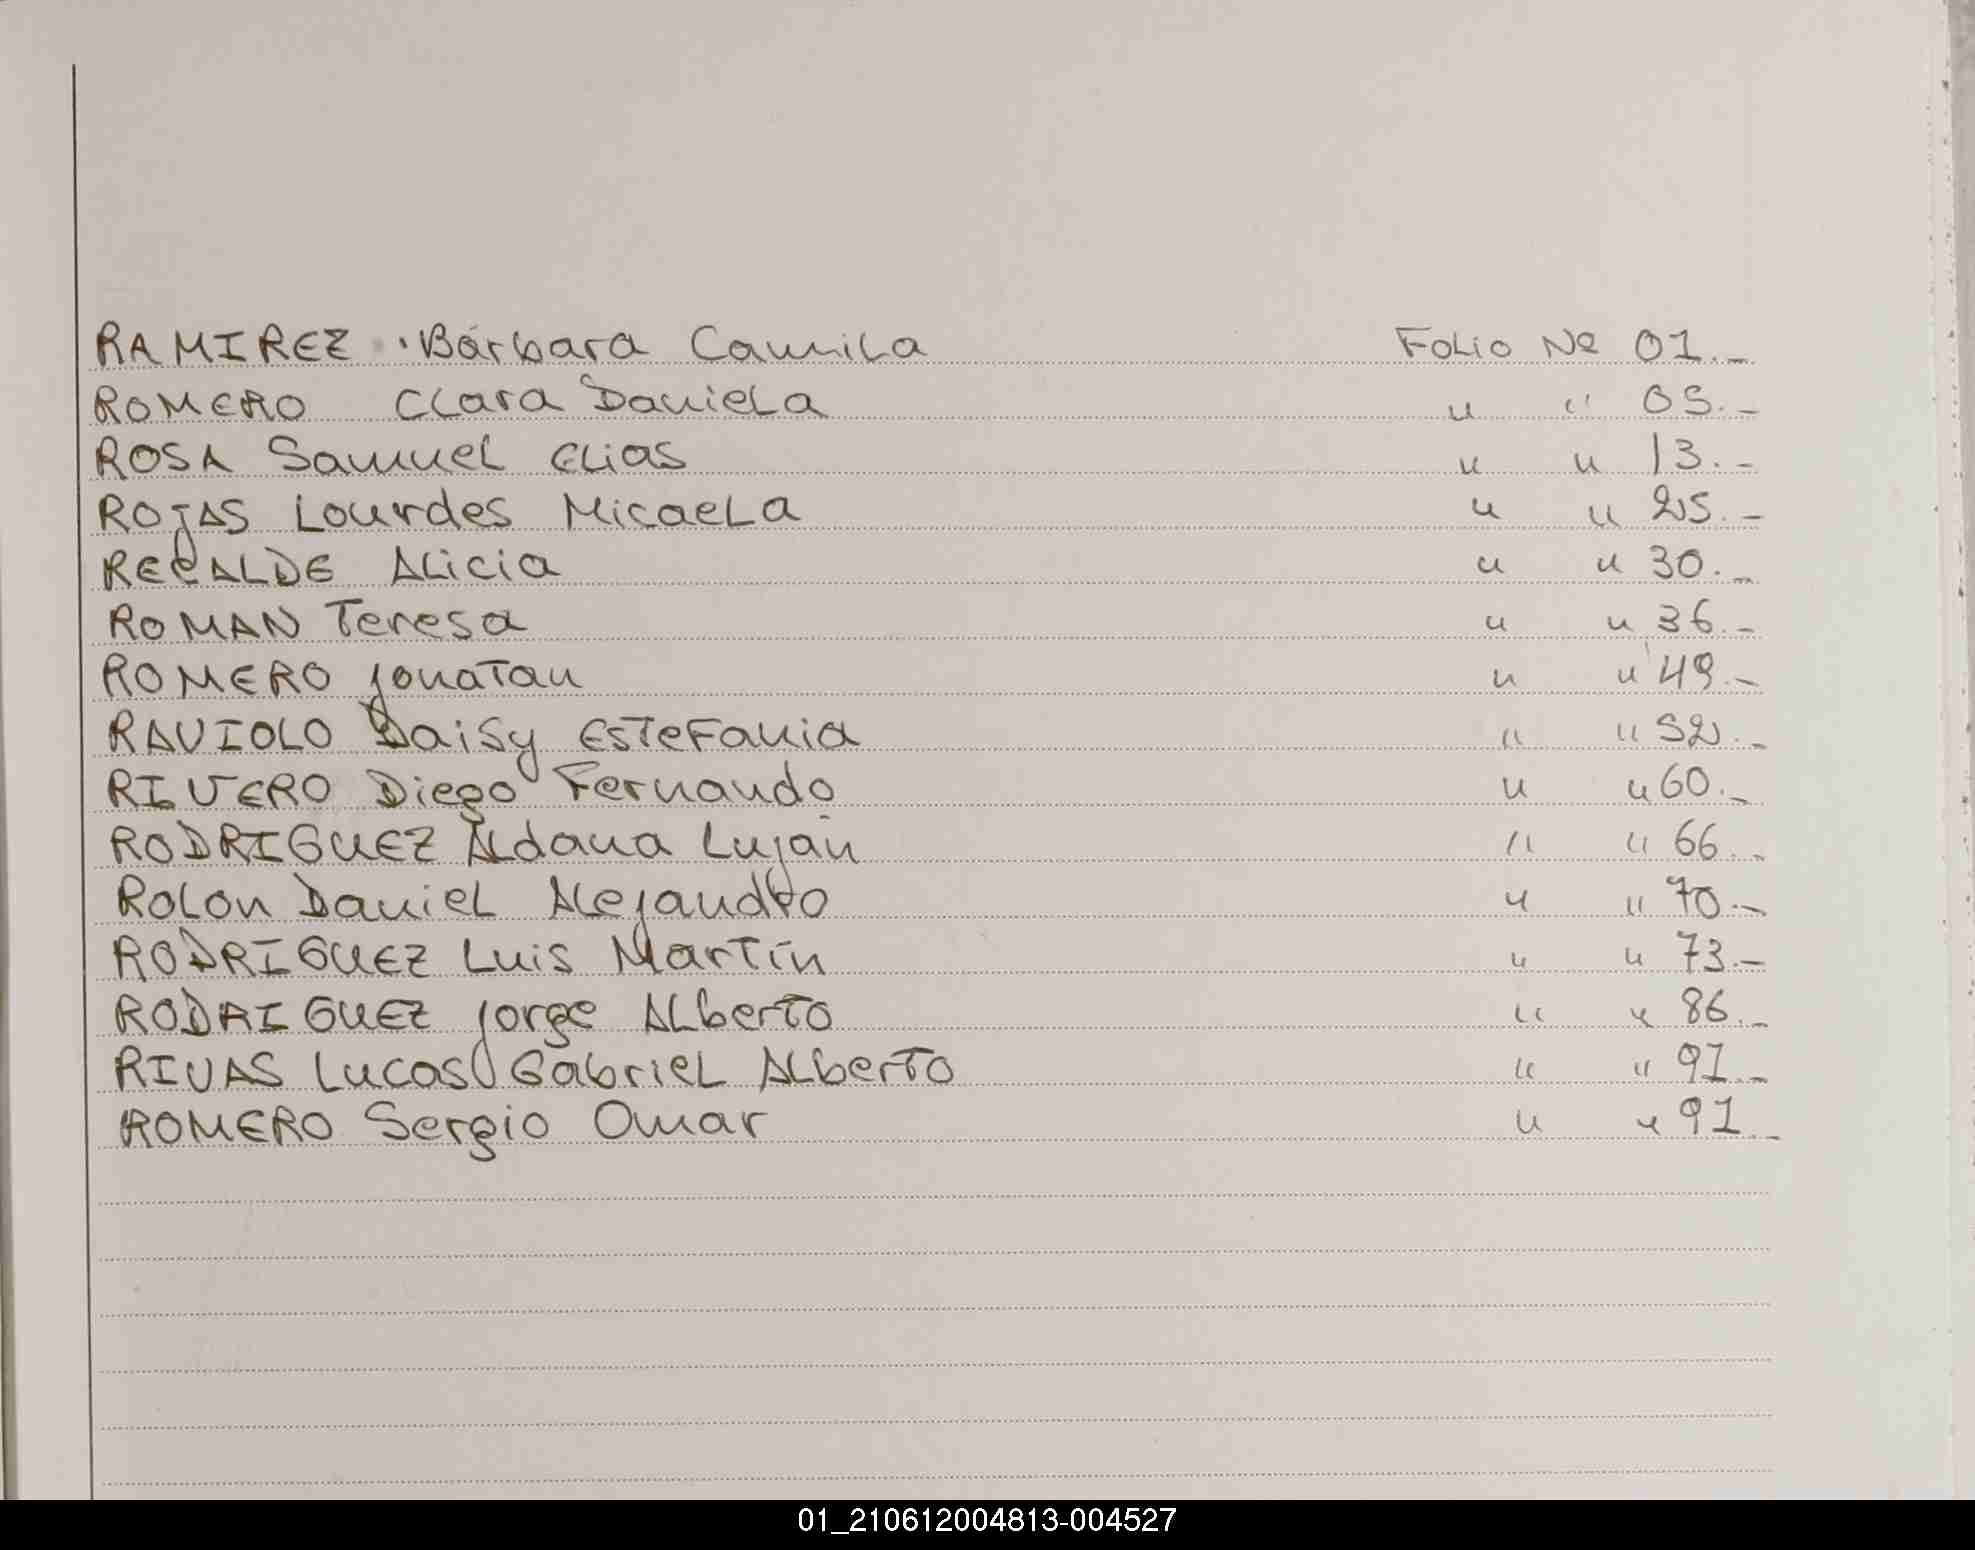 RAMIREZ Bárbara Camila Folio Nº 01.-
ROMERO Clara Daniela " " 05.-
ROSA Samuel Elias " " 13.-
ROJAS Lourdes Micaela " " 25.-
RECALDE Alicia " " 30.-
ROMAN Teresa " " 36.-
ROMERO Jonatan " " 49.-
RAVIOLO Daisy Estefania " " 52.-
RIVERO Diego Fernando " " 60.-
RODRIGUEZ Aldana Luján " " 66.-
Rolon Daniel Alejandro " " 70.-
RODRIGUEZ Luis Martín " " 73.-
RODRIGUEZ Jorge Alberto " " 86.-
RIVAS Lucas Gabriel Alberto " " 91.-
ROMERO Sergio Omar " " 91.-
01_210612004813-004527